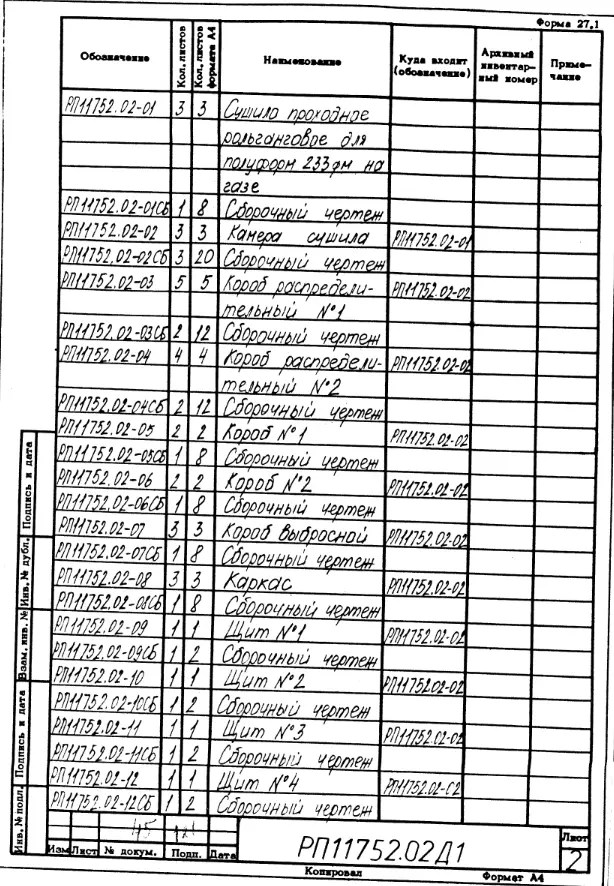 Форма 27.1
Обозначение Кол. листов Кол. листов формата А4 Наименование Куда входит (обозначение) Архивный инвентарный номер Примечание
РП11752.02-01 3 3 Сушило проходное
рольганговое для
полуформ 233 дм на
газе
РП11752.02-01СБ 1 8 Сборочный чертеж
РП11752.02-02 3 3 Камера сушила РП11752.02-01
РП11752.02-02СБ 3 20 Сборочный чертеж
РП11752.02-03 5 5 Короб распредели- РП11752.02-02
тельный №1
РП11752.02-03СБ 2 12 Сборочный чертеж
РП11752.02-04 4 4 Короб распредели- РП11752.02-02
тельный №2
РП11752.02-04СБ 2 12 Сборочный чертеж
РП11752.02-05 2 2 Короб №1 РП11752.02-02
РП11752.02-05СБ 1 8 Сборочный чертеж
РП11752.02-06 2 2 Короб №2 РП11752.02-02
РП11752.02-06СБ 1 8 Сборочный чертеж
РП11752.02-07 3 3 Короб выбросной РП11752.02-02
РП11752.02-07СБ 1 8 Сборочный чертеж
РП11752.02-08 3 3 Каркас РП11752.02-02
РП11752.02-08СБ 1 8 Сборочный чертеж
РП11752.02-09 1 1 Щит №1 РП11752.02-02
РП11752.02-09СБ 1 2 Сборочный чертеж
РП11752.02-10 1 1 Щит №2 РП11752.02-02
РП11752.02-10СБ 1 2 Сборочный чертеж
РП11752.02-11 1 1 Щит №3 РП11752.02-02
РП11752.02-11СБ 1 2 Сборочный чертеж
РП11752.02-12 1 1 Щит №4 РП11752.02-02
РП11752.02-12СБ 1 2 Сборочный чертеж
Инв. № подл. Подпись и дата Взам. инв. № Инв. № дубл. Подпись и дата
Изм Лист № докум. Подп. Дата
РП11752.02Д1
Лист
2
Копировал Формат А4